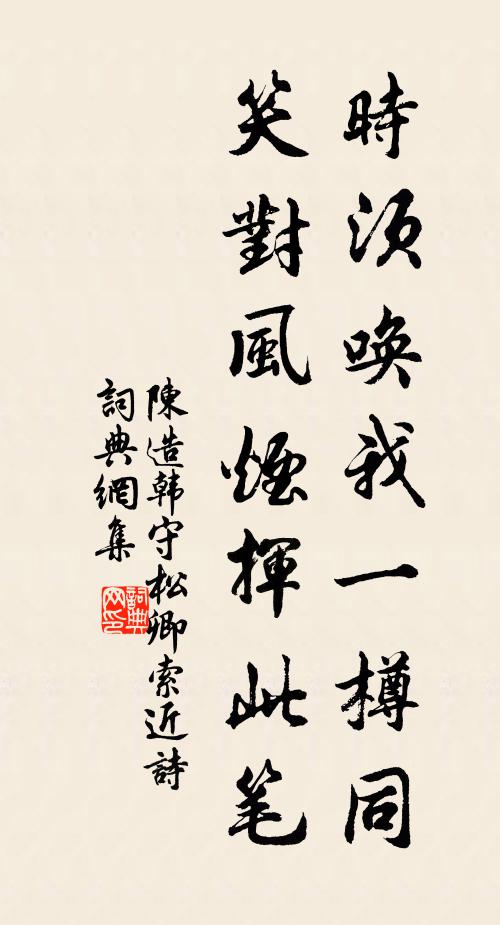 時須喚我一樽同
笑對風煙揮此笔
陳造韩守松卿索近詩
詞典網集
詞典网印